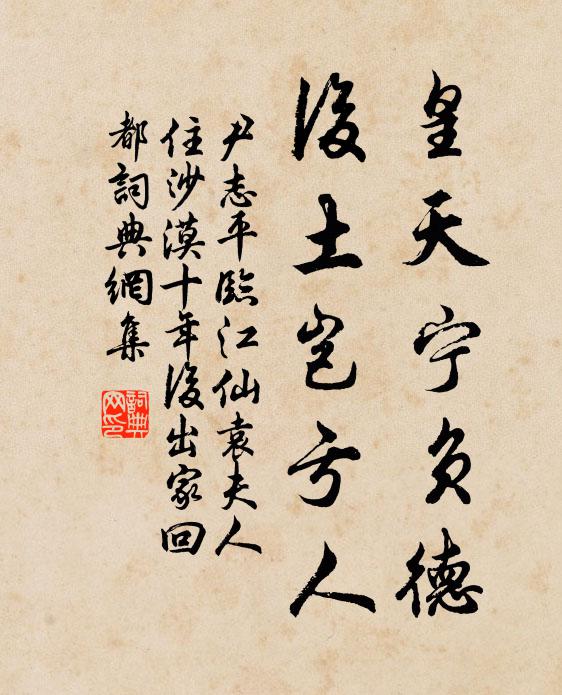 皇天宁负德
後土岂亏人
尹志平臨江仙袁夫人
住沙漠十年後出家回
都詞典網集
詞典
网印